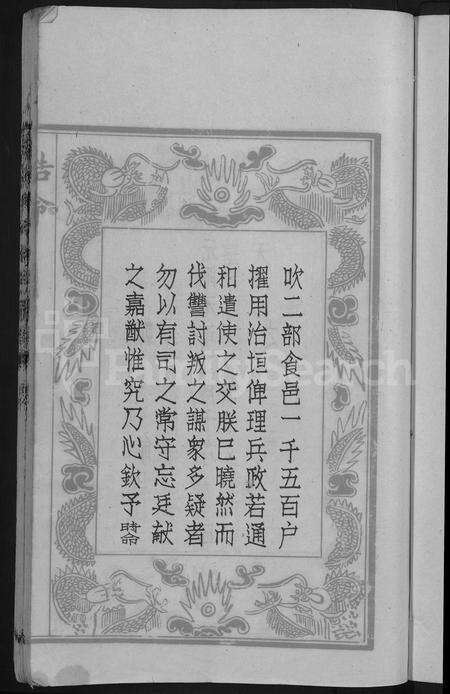 吹二部食邑一千五百户
擢用治垣俾理兵政若通
和遣使之交朕已曉然而
伐讐討叛之謀衆多疑者
勿以有司之常守忘廷献
之嘉猷惟究乃心欽予時命
誥命